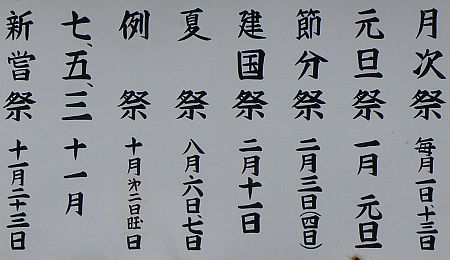 月次祭 毎月一日、十三日
元旦祭 一月 元旦
節分祭 二月三日(四日)
建国祭 二月十一日
夏祭 八月六日、七日
例祭 十月㐧二日旺日
七、五、三 十一月
新嘗祭 十一月二十三日